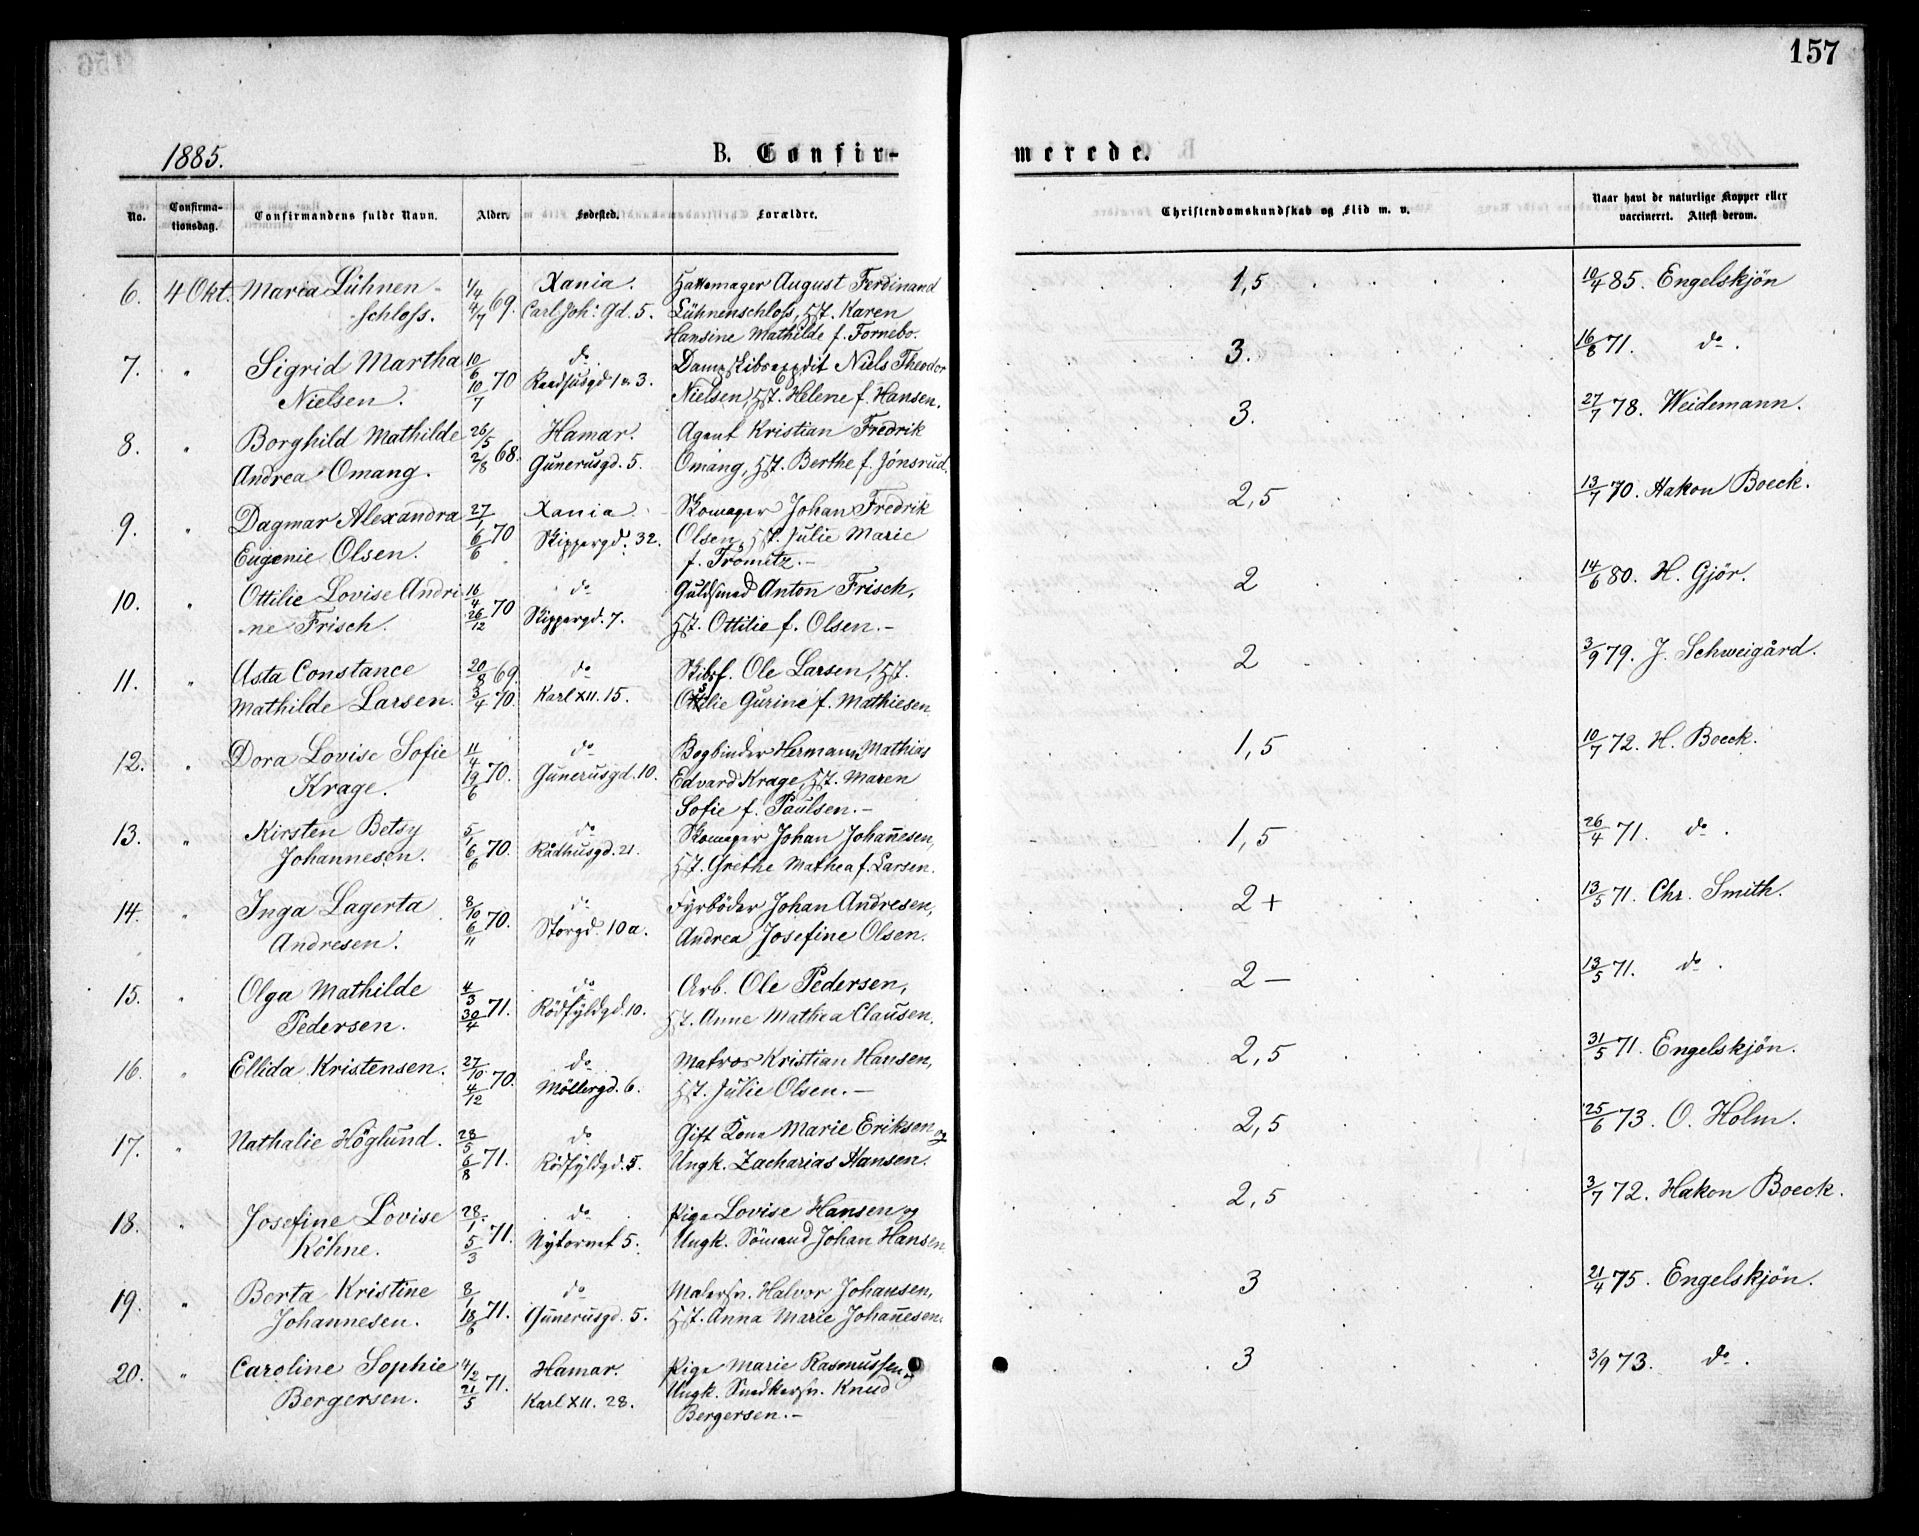 157
1885.
B. Confir-
merede.
No. Confirma-tionsdag. Confirmandens fulde Navn. Alder. Fødested. Forældre. Christendomskundskab og Flid m. v. Naar havt de naturlige Kopper eller vaccineret. Attest derom.
6. 4 Okt. Maria Lühnen- 1/4 Xania. Hattemager August Ferdinand 1,5 10/4 85. Engelskjön
schloss. 4/7 69. Carl Joh: Gd. 5. Lühnenschloss, Hst. Karen
Hansine Mathilde f. Fornebo.
7. " Sigrid Martha 10/6 do Dampskibsexpdit Niels Theodor 3. 16/8 71. do.
Nielsen. 10/7 70 Raadhusgd 1 3. Nielsen, Hst. Helene f. Hansen.
8. " Borghild Mathilde 26/5 Hamar. Agent Kristian Fredrik 3. 27/7 78. Weidemann.
Andrea Omang. 2/8 68. Gunerusgd. 5. Omang, Hst. Berthe f. Jönsrud.
9. " Dagmar Alexandra 27/1 Xania Skomager Johan Fredrik 2,5 13/7 70. Hakon Boeck.
Eugenie Olsen. 6/6 70 Skippergd. 32. Olsen, Hst. Julie Marie
f. Trömitz.-
10. " Ottilie Lovise Andri 16/4 do Guldsmed Anton Frisch, 2 14/6 80. H. Gjör.
-ne Frisch. 26/12 70 Skippergd. 7. Hst. Ottilie f. Olsen.-
11. " Asta Constance 20/8 69. do Skibsf. Ole Larsen, Hst. 2 3/9 79. J. Schweigård.
Mathilde Larsen. 3/4 70. Karl XII. 15. Gurine f. Mathiesen
12. " Dora Lovise Sofie 11/4 do Bogbinder Herman Mathias 1,5 10/7 72. H. Boeck.
Krage. 19/6 70. Gunerusgd. 10. Edvard Krage, Hst. Maren
Sofie f. Paulsen.-
13. " Kirsten Betsy 5/1 do Skomager Johan Johannesen, 1,5 26/4 71. do.
Johannesen. 6/6 70. Rådhusgd. 21. Hst. Grethe Mathea f. Larsen.
14. " Inga Lagerta 8/10 do Fyrböder Johan Andresen, 2+ 13/5 71. Chr. Smith.
Andresen. 6/11 70. Storgd. 10a. Andrea Josefine Olsen.
15. " Olga Mathilde 4/3 do Arb. Ole Pedersen, 2- 13/5 71. do.
Pedersen. 30/4 71. Rödfyldgd. 10. Hst. Anne Mathea Clausen.
16. " Ellida Kristensen. 27/10 do Matros Kristian Hansen, 2,5 31/5 71. Engelskjön.
4/12 70. Möllergd. 6. Hst. Julie Olsen.-
17. " Nathalie Höglund. 28/5 do Gift Kone Marie Eriksen og 2,5 25/6 73. O. Holm.
6/8 71. Rödfyldgd. 5. Ungk. Zacharias Hansen.
18. " Josefine Lovise 28/1 do Pige Lovise Hansen og 2,5 3/7 72. Hakon Boeck.
Köhne. 5/3 71. Nytorvet 5. Ungk. Sömand Johan Hansen
19. " Berta Kristine 8/1 do Malersv. Halvor Johansen, 3 21/4 75. Engelskjön.
Johannesen. 18/6 71. Gunerusgd. 5. Hst. Anna Marie Johannesen.
20. " Caroline Sophie 4/2 Hamar. Pige Marie Rasmussen, 3 3/9 73. do.
Bergersen. 21/5 71. Karl XII. 28. Ungk. Snedkersv. Knud
Bergersen.-